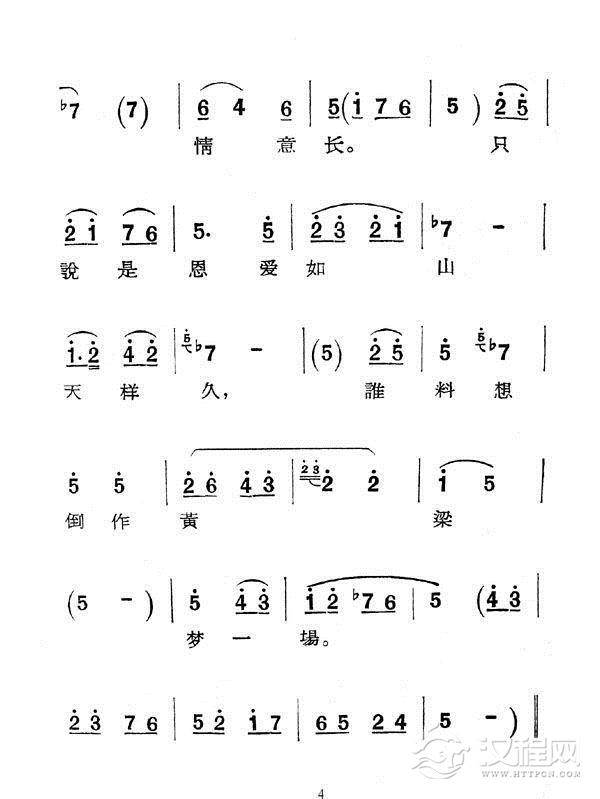 ♭7 (7) | 6 4 6 | 5(i 7 6 | 5) (2 5 |
情 意 长。 只
2 i 7 6 | 5. 5 | 2 3 2 i | ♭7 - |
說 是 恩 爱 如 山
i. 2 4 2 | 5 ♭7 - | (5) 2 5 | 5 5 ♭7 |
天 样 久， 誰 料 想
5 5 | 2 6 4 3 | 2 3 2 2 | i 5 |
倒 作 黃 梁
(5 -) | 5 4 3 | i 2 ♭7 6 | 5 (4 3 |
梦 一 場。
2 3 7 6 | 5 2 i 7 | 6 5 2 4 | 5 -) ‖
汉程网
WWW.HTTPCN.COM
4